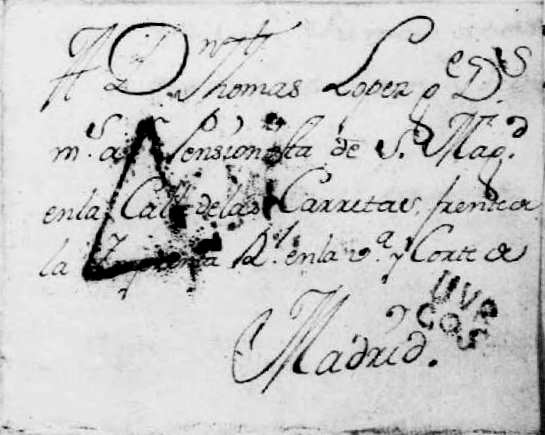 A D.n Thomas Lopez q.e D.s
m.s a.s Pensionista de S. Mag.d
en la Calle de las Carretas, frente de
la Imprenta R.l en la v.a y Corte de
Madrid.